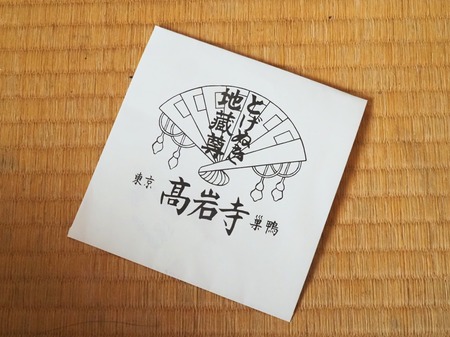 とげぬき
地蔵尊
東京
髙岩寺
巣鴨